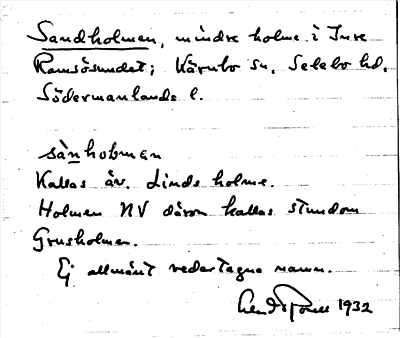 Sandholmen, mindre holme i Inre
Ramsösundet; Kärnbo sn. Selebo hd.
Södermanlands l.
sànholmen
Kallas äv. Linds holme.
Holmen NV därom kallas stundom
Grusholmen.
Ej allmänt vedertagna namn.
1932